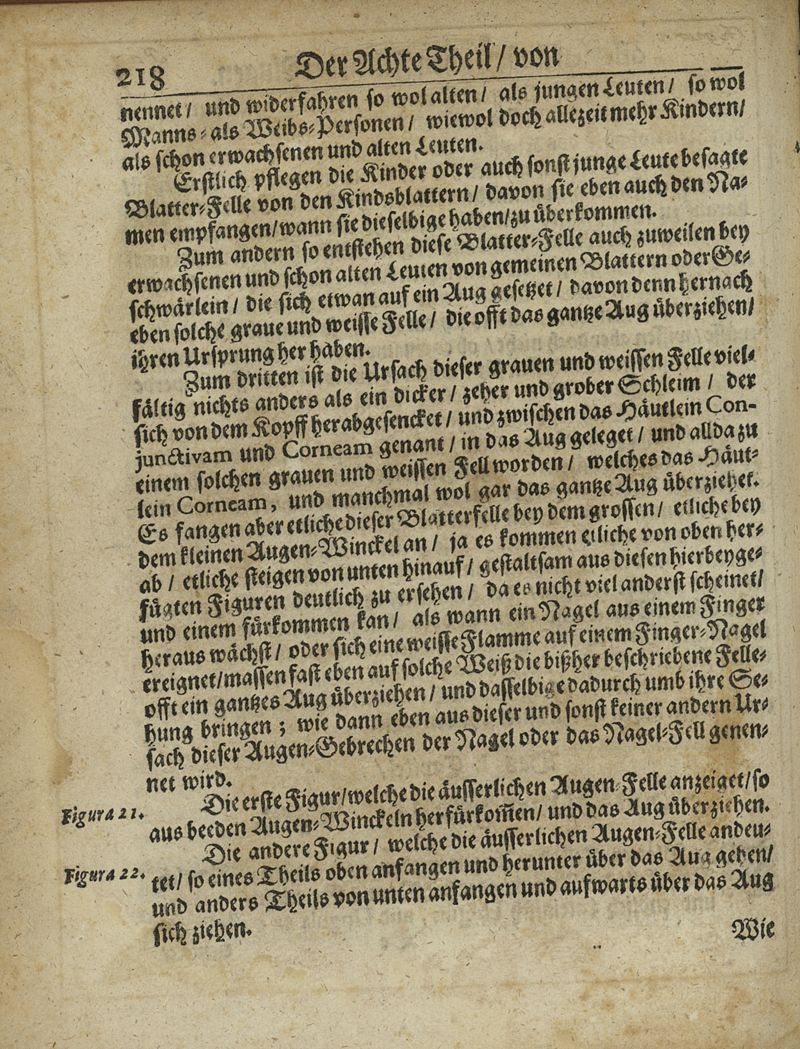 218
Der Achte Theil / von
nennet / und widerfahren so wol alten / als jungen Leuten / so wol
Manns- als Weibs-Personen / wiewol doch allezeit mehr Kindern /
als schon erwachsenen und alten Leuten.
Erstlich pflegen die Kinder oder auch sonst junge Leute besagte
Blatter-Felle von den Kindsblattern / davon sie eben auch den Na-
men empfangen / wann sie dieselbige haben / zu überkommen.
Zum andern so entstehen diese Blatter-Felle auch zuweilen bey
erwachsenen und schon alten Leuten von gemeinen Blattern oder Ge-
schwärlein / die sich etwan auf ein Aug gesetzet / davon denn hernach
eben solche graue und weisse Felle / die offt das gantze Aug überziehen /
ihren Ursprung her haben.
Zum dritten ist die Ursach dieser grauen und weissen Felle viel-
fältig nichts anders als ein dicker / zeher und grober Schleim / der
sich von dem Kopff herabgesencket / und zwischen das Häutlein Con-
junctivam und Corneam genant / in das Aug geleget / und allda zu
einem solchen grauen und weissen Fell worden / welches das Häut-
lein Corneam, und manchmal wol gar das gantze Aug überziehet.
Es fangen aber etliche dieser Blatterfelle bey dem grossen / etliche bey
dem kleinen Augen-Winckel an / ja es kommen etliche von oben her-
ab / etliche steigen von unten hinauf / gestaltsam aus diesen hierbeyge-
fügten Figuren deutlich zu ersehen / da es nicht viel anderst scheinet /
und einem fürkommen kan / als wann ein Nagel aus einem Finger
heraus wächst / oder sich eine weisse Flamme auf einem Finger-Nagel
ereignet / massen fast eben auf solche Weiß die bißher beschriebene Felle-
offt ein gantzes Aug überziehen / und dasselbige dadurch umb ihre Se-
hung bringen ; wie dann eben aus dieser und sonst keiner andern Ur-
sach dieser Augen-Gebrechen der Nagel oder das Nagel-Fell genen-
net wird.
Figura 21. Die erste Figur / welche die äusserlichen Augen-Felle anzeiget / so
aus beeden Augen-Winckeln herfürkom̄en / und das Aug überziehen.
Die andere Figur / welche die äusserlichen Augen-Felle andeu-
Figura 22. tet / so eines Theils oben anfangen und herunter über das Aug gehen /
und anders Theils von unten anfangen und aufwarts über das Aug
sich ziehen.
Wie